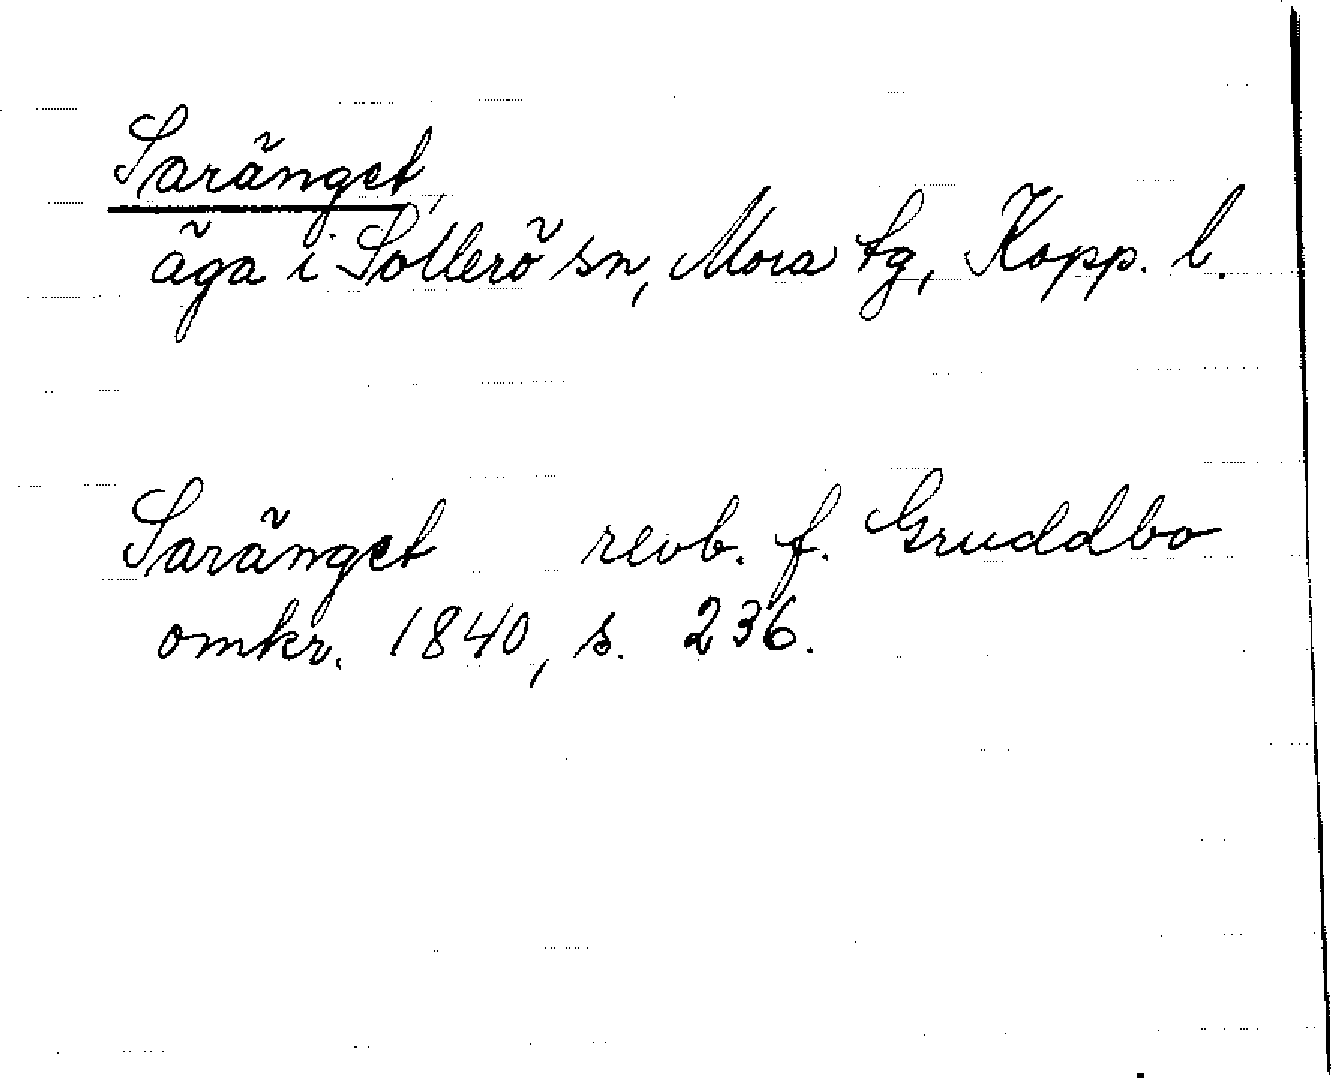 Saränget
äga i Sollerö sn, Mora tg, Kopp. l.
Saränget revb. f. Gruddbo
omkr. 1840, s. 236.